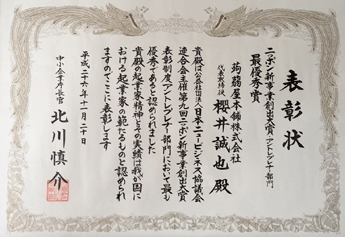 表彰状
ニッポン新事業創出大賞アントレプレナー部門
最優秀賞
蒟蒻屋本舗株式会社
代表取締役 櫻井誠也殿
貴殿は公益社団法人日本ニュービジネス協議会
連合会主催第九回ニッポン新事業創出大賞
表彰制度アントレプレナー部門において最も
優秀であると認められました
貴殿の起業家精神とその実績は我が国に
おける起業家の範たるものと認められ
ますのでここに表彰します
平成二十六年十一月二十日
中小企業庁長官
北川慎介